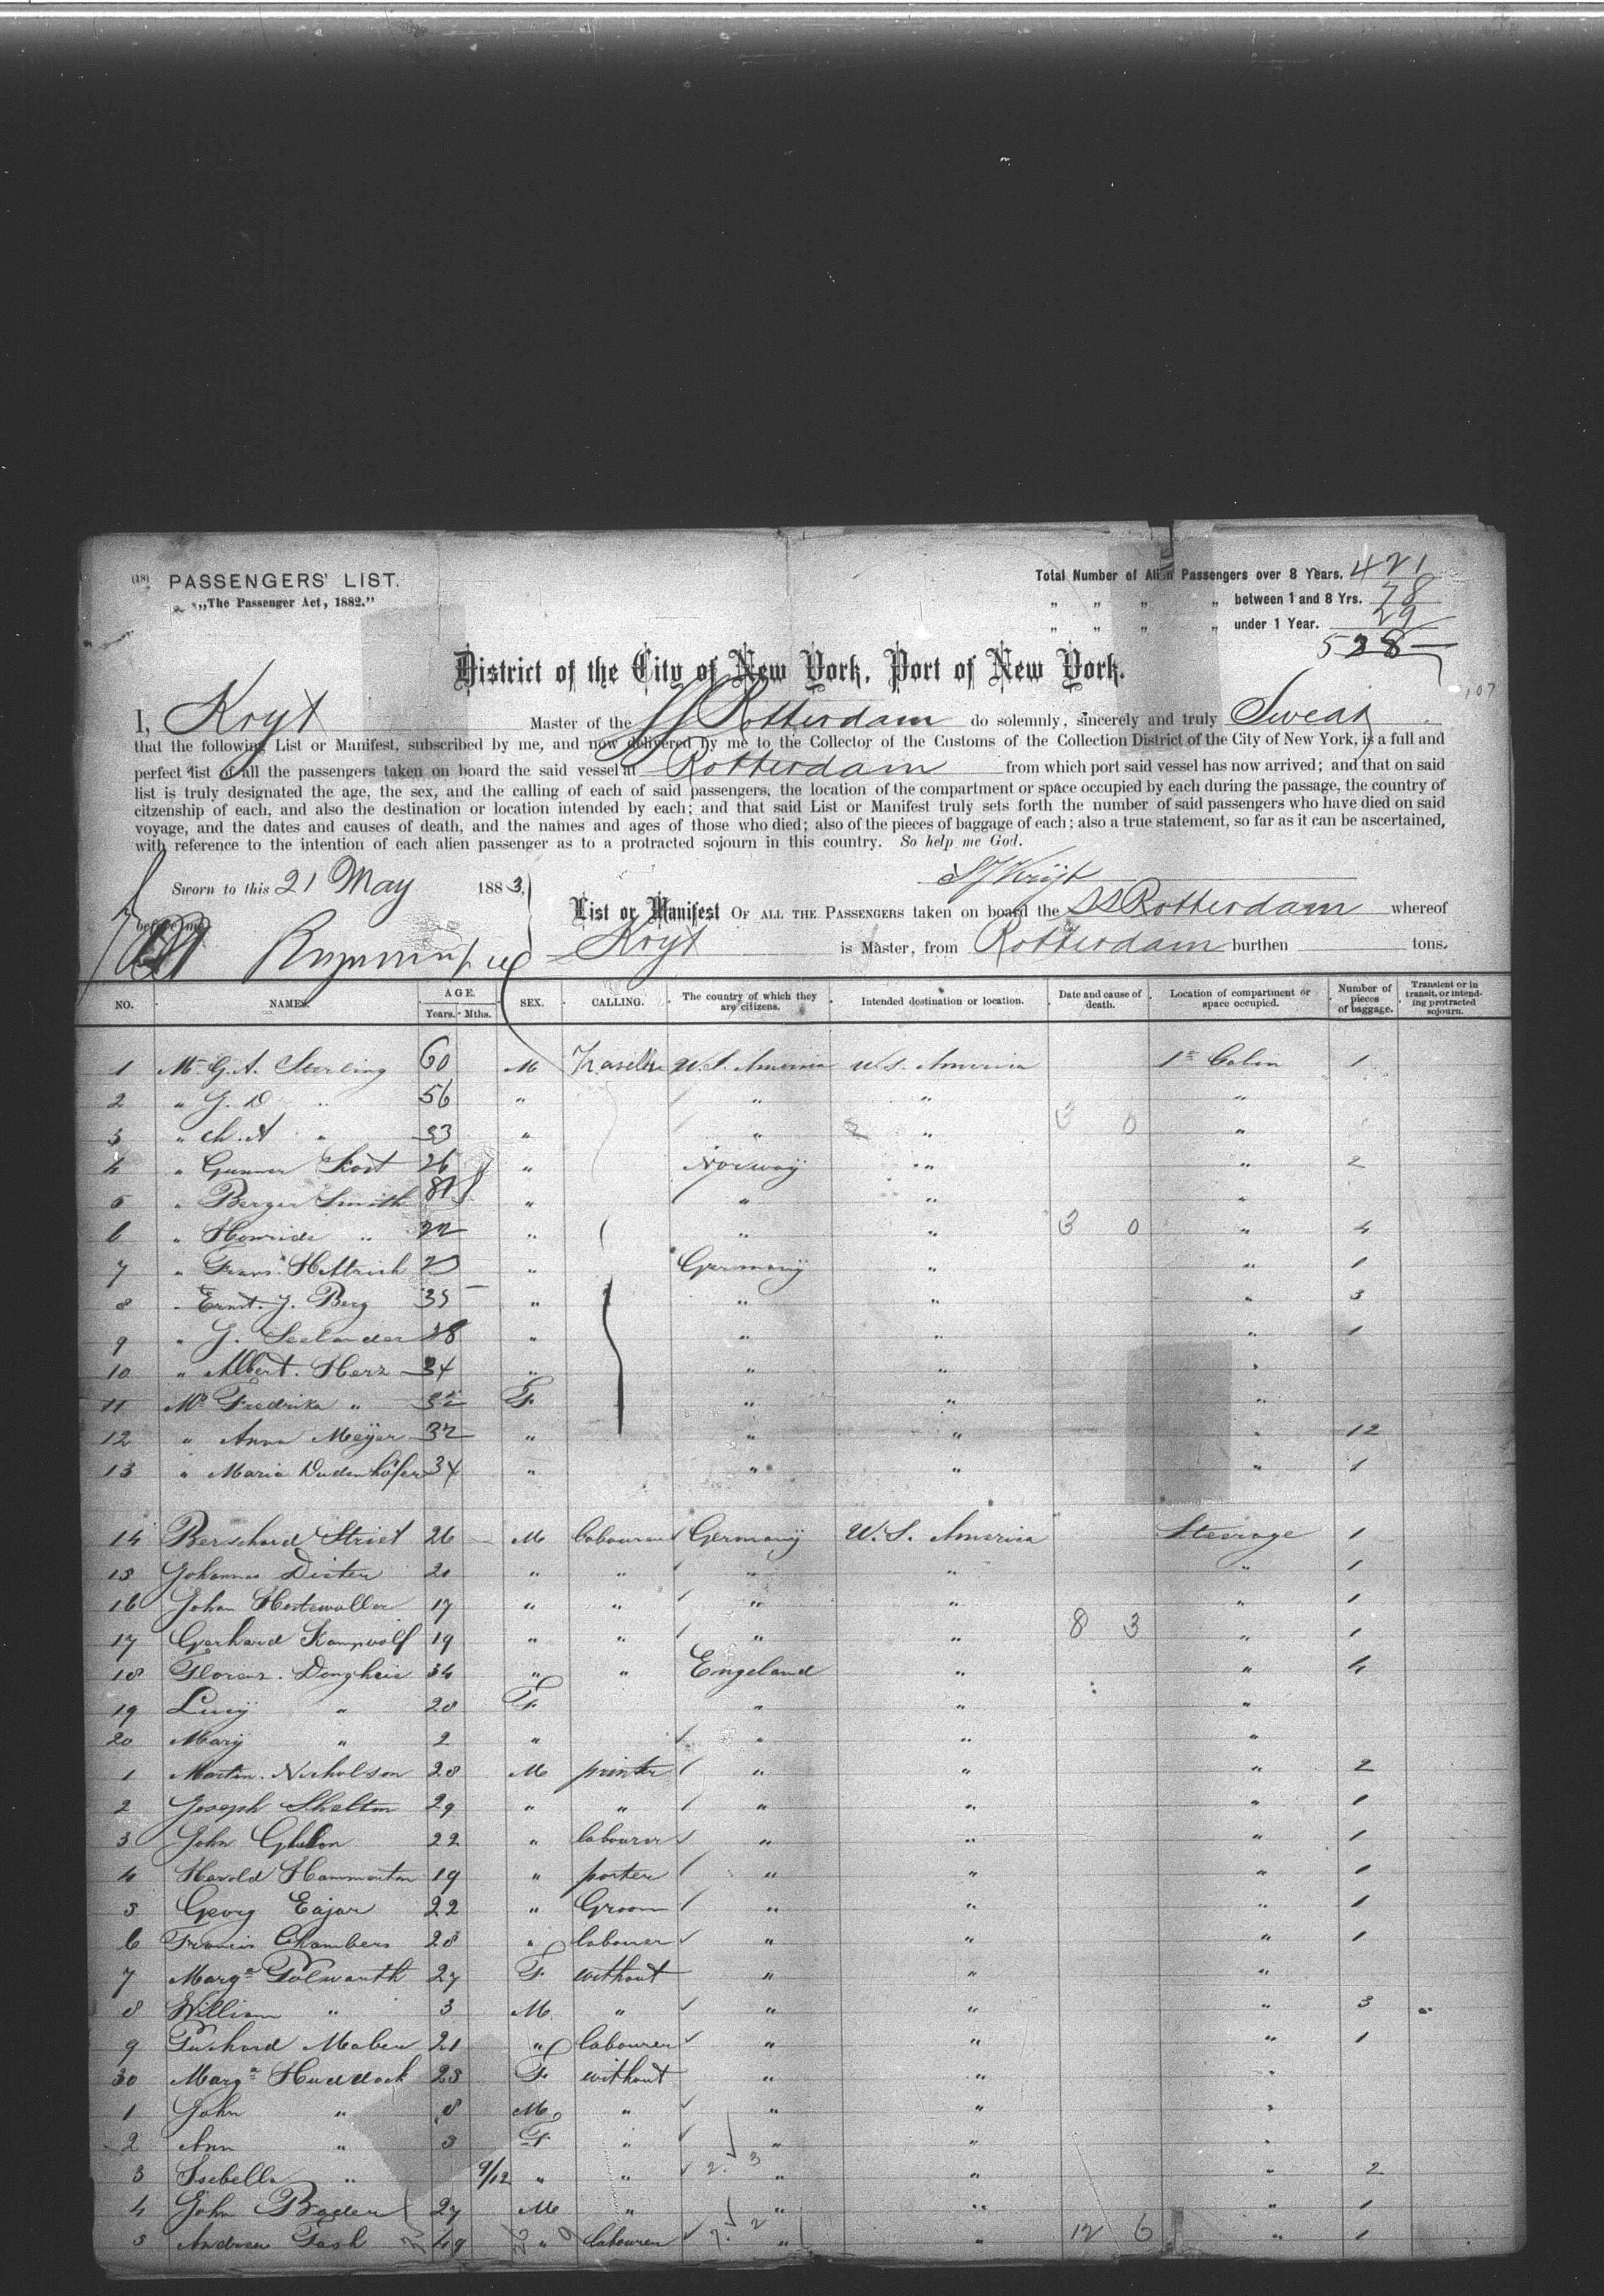 (18) PASSENGERS' LIST.
„The Passenger Act, 1882."
Total Number of Alien Passengers over 8 Years. 421
„ „ „ „ between 1 and 8 Yrs. 78
„ „ „ „ under 1 Year. 29
528
District of the City of New York, Port of New York.
107
I, Kryt Master of the SS Rotterdam do solemnly, sincerely and truly Swear
that the following List or Manifest, subscribed by me, and now delivered by me to the Collector of the Customs of the Collection District of the City of New York, is a full and
perfect list of all the passengers taken on board the said vessel at Rotterdam from which port said vessel has now arrived; and that on said
list is truly designated the age, the sex, and the calling of each of said passengers, the location of the compartment or space occupied by each during the passage, the country of
citzenship of each, and also the destination or location intended by each; and that said List or Manifest truly sets forth the number of said passengers who have died on said
voyage, and the dates and causes of death, and the names and ages of those who died; also of the pieces of baggage of each; also a true statement, so far as it can be ascertained,
with reference to the intention of each alien passenger as to a protracted sojourn in this country. So help me God.
Sworn to this 21 May 1883,
before me
List or Manifest OF ALL THE PASSENGERS taken on board the SS Rotterdam whereof
Kryt is Master, from Rotterdam burthen tons.
NO. NAMES. AGE. Years. Mths. SEX. CALLING. The country of which they are citizens. Intended destination or location. Date and cause of death. Location of compartment or space occupied. Number of pieces of baggage. Transient or in transit, or intending protracted sojourn.
1 Mr G. A. Sterling 60 M U.S. America U.S. America 1st Cabin 1
2 „ G. D „ 56 „ „ „ „
3 „ Ch. A „ 33 „ „ „ 3 0 „
4 „ Gunner 26 „ Norway „ „ 2
5 „ Berger Smith „ „ „ „
6 „ „ 22 „ „ „ 3 0 „ 4
7 „ Frans Hettrich „ Germany „ „ 1
8 „ Ernst. J. Berg 35 „ „ „ „ 3
9 „ J. Seelander 28 „ „ „ „ 1
10 „ Albert. Herz 34 „ „ „ „
11 Ms Fredrika „ 32 F. „ „ „
12 „ Anna Meyer 32 „ „ „ „ 12
13 „ Maria Dudenhöfer 34 „ „ „ „ 1
14 Striet 26 M labourer Germany U. S. America Steerage 1
15 Johannes Dieter 21 „ „ „ „ „ 1
16 Johan 17 „ „ „ „ „ 1
17 Gerhard Kampwolf 19 „ „ „ „ 8 3 „ 1
18 34 „ „ Engeland „ „ 4
19 Lucy „ 28 F. „ „ „
20 Mary „ 2 „ „ „ „
1 Martin. Nicholson 28 M printer „ „ „ 2
2 Joseph Shelton 29 „ „ „ „ „ 1
3 John 22 „ labourer „ „ „ 1
4 Harold Hammerton 19 „ porter „ „ „ 1
5 Georg Eajar 22 „ Groom „ „ „ 1
6 Francis Chambers 28 „ labourer „ „ „ 1
7 Marga Polwarth 27 F. without „ „ „
8 William „ 3 M. „ „ „ „ 3
9 Mabew 21 „ labourer „ „ „ 1
30 Marga Huddock 28 F. without „ „ „
1 John „ 8 M. „ „ „ „
2 Ann „ 3 F. „ „ „ „
3 Isebella „ 9/12 „ „ „ „ „ 2
4 John 27 M „ „ „ „ 1
5 Andrew 49 „ labourer „ „ 12 6 „ 1